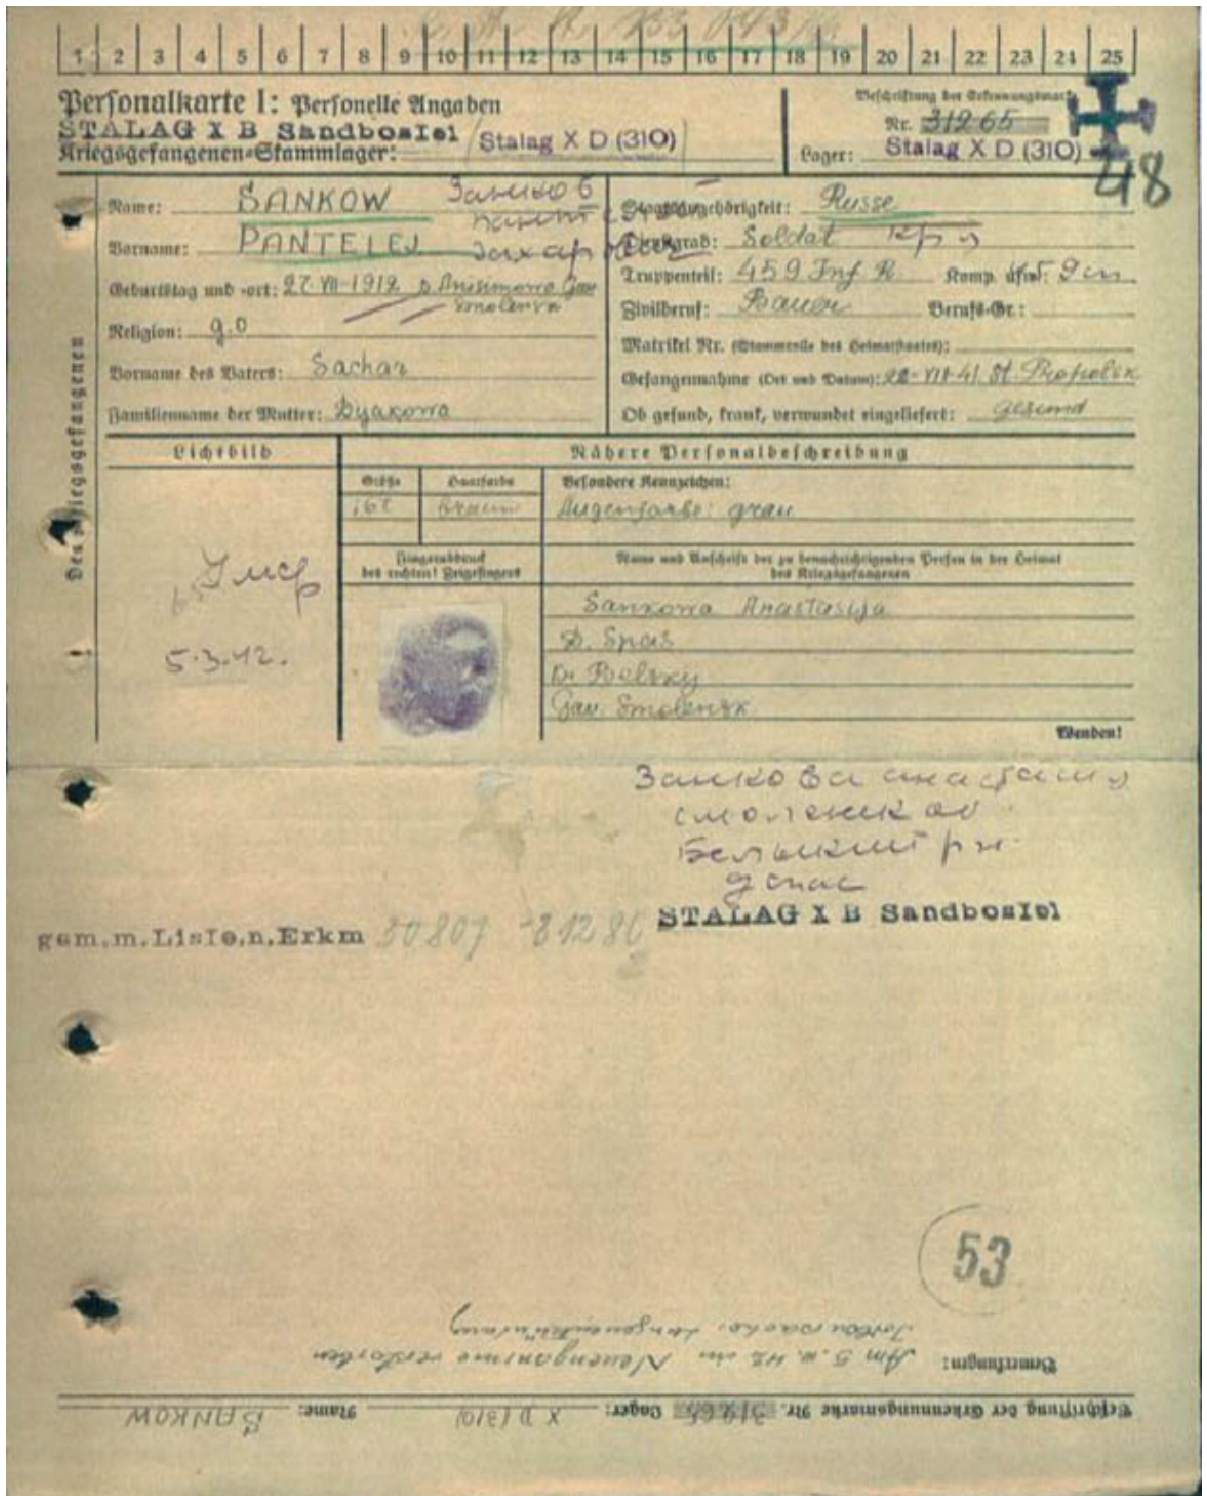 1 2 3 4 5 6 7 8 9 10 11 12 13 14 15 16 17 18 19 20 21 22 23 24 25
Personalkarte I: Personelle Angaben
STALAG X B Sandbostel
Kriegsgefangenen-Stammlager: Stalag X D (310)
Beschriftung der Erkennungsmarke
Nr. 31265
Lager: Stalag X D (310)
48
Des Kriegsgefangenen
Name: SANKOW Занков
Vorname: PANTELEJ
Geburtstag und -ort: 27 VII-1912 D. Anisimowo Gouv
Smolensk
Religion: g.o
Vorname des Vaters: Sachar
Familienname der Mutter: Dyakowa
Staatsangehörigkeit: Russe
Dienstgrad: Soldat кр-ц
Truppenteil: 459 Inf R. Komp. usw.:
Zivilberuf: Bauer Berufs-Gr.:
Matrikel Nr. (Stammrolle des Heimatstaates):
Gefangennahme (Ort und Datum): St. Propolsk
Ob gesund, krank, verwundet eingeliefert: gesund
Lichtbild
Nähere Personalbeschreibung
Größe Haarfarbe Besondere Kennzeichen:
braun Augenfarbe: grau
Fingerabdruck
des rechten! Zeigefingers
Name und Anschrift der zu benachrichtigenden Person in der Heimat
des Kriegsgefangenen
Умер
5.3.42.
Sankowa Anastasija
D. Spas
Belskij
Gouv. Smolensk
Wenden!
Занкова анастасия
смоленская
Бельский рн.
д спас
STALAG X B Sandbostel
gem.m.Liste.n.Erkm 30807
53
Bemerkungen: Am 5. III. 42 in Neuengamme verstorben
Todesursache: Lungenentzündung
Beschriftung der Erkennungsmarke Nr. 31265 Lager: X D (310) Name: SANKOW